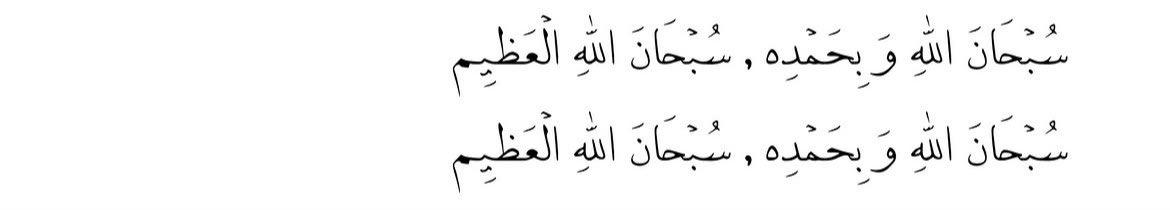 سُبْحَانَ اللهِ وَ بِحَمْدِه , سُبْحَانَ اللهِ الْعَظِيِم
سُبْحَانَ اللهِ وَ بِحَمْدِه , سُبْحَانَ اللهِ الْعَظِيِم